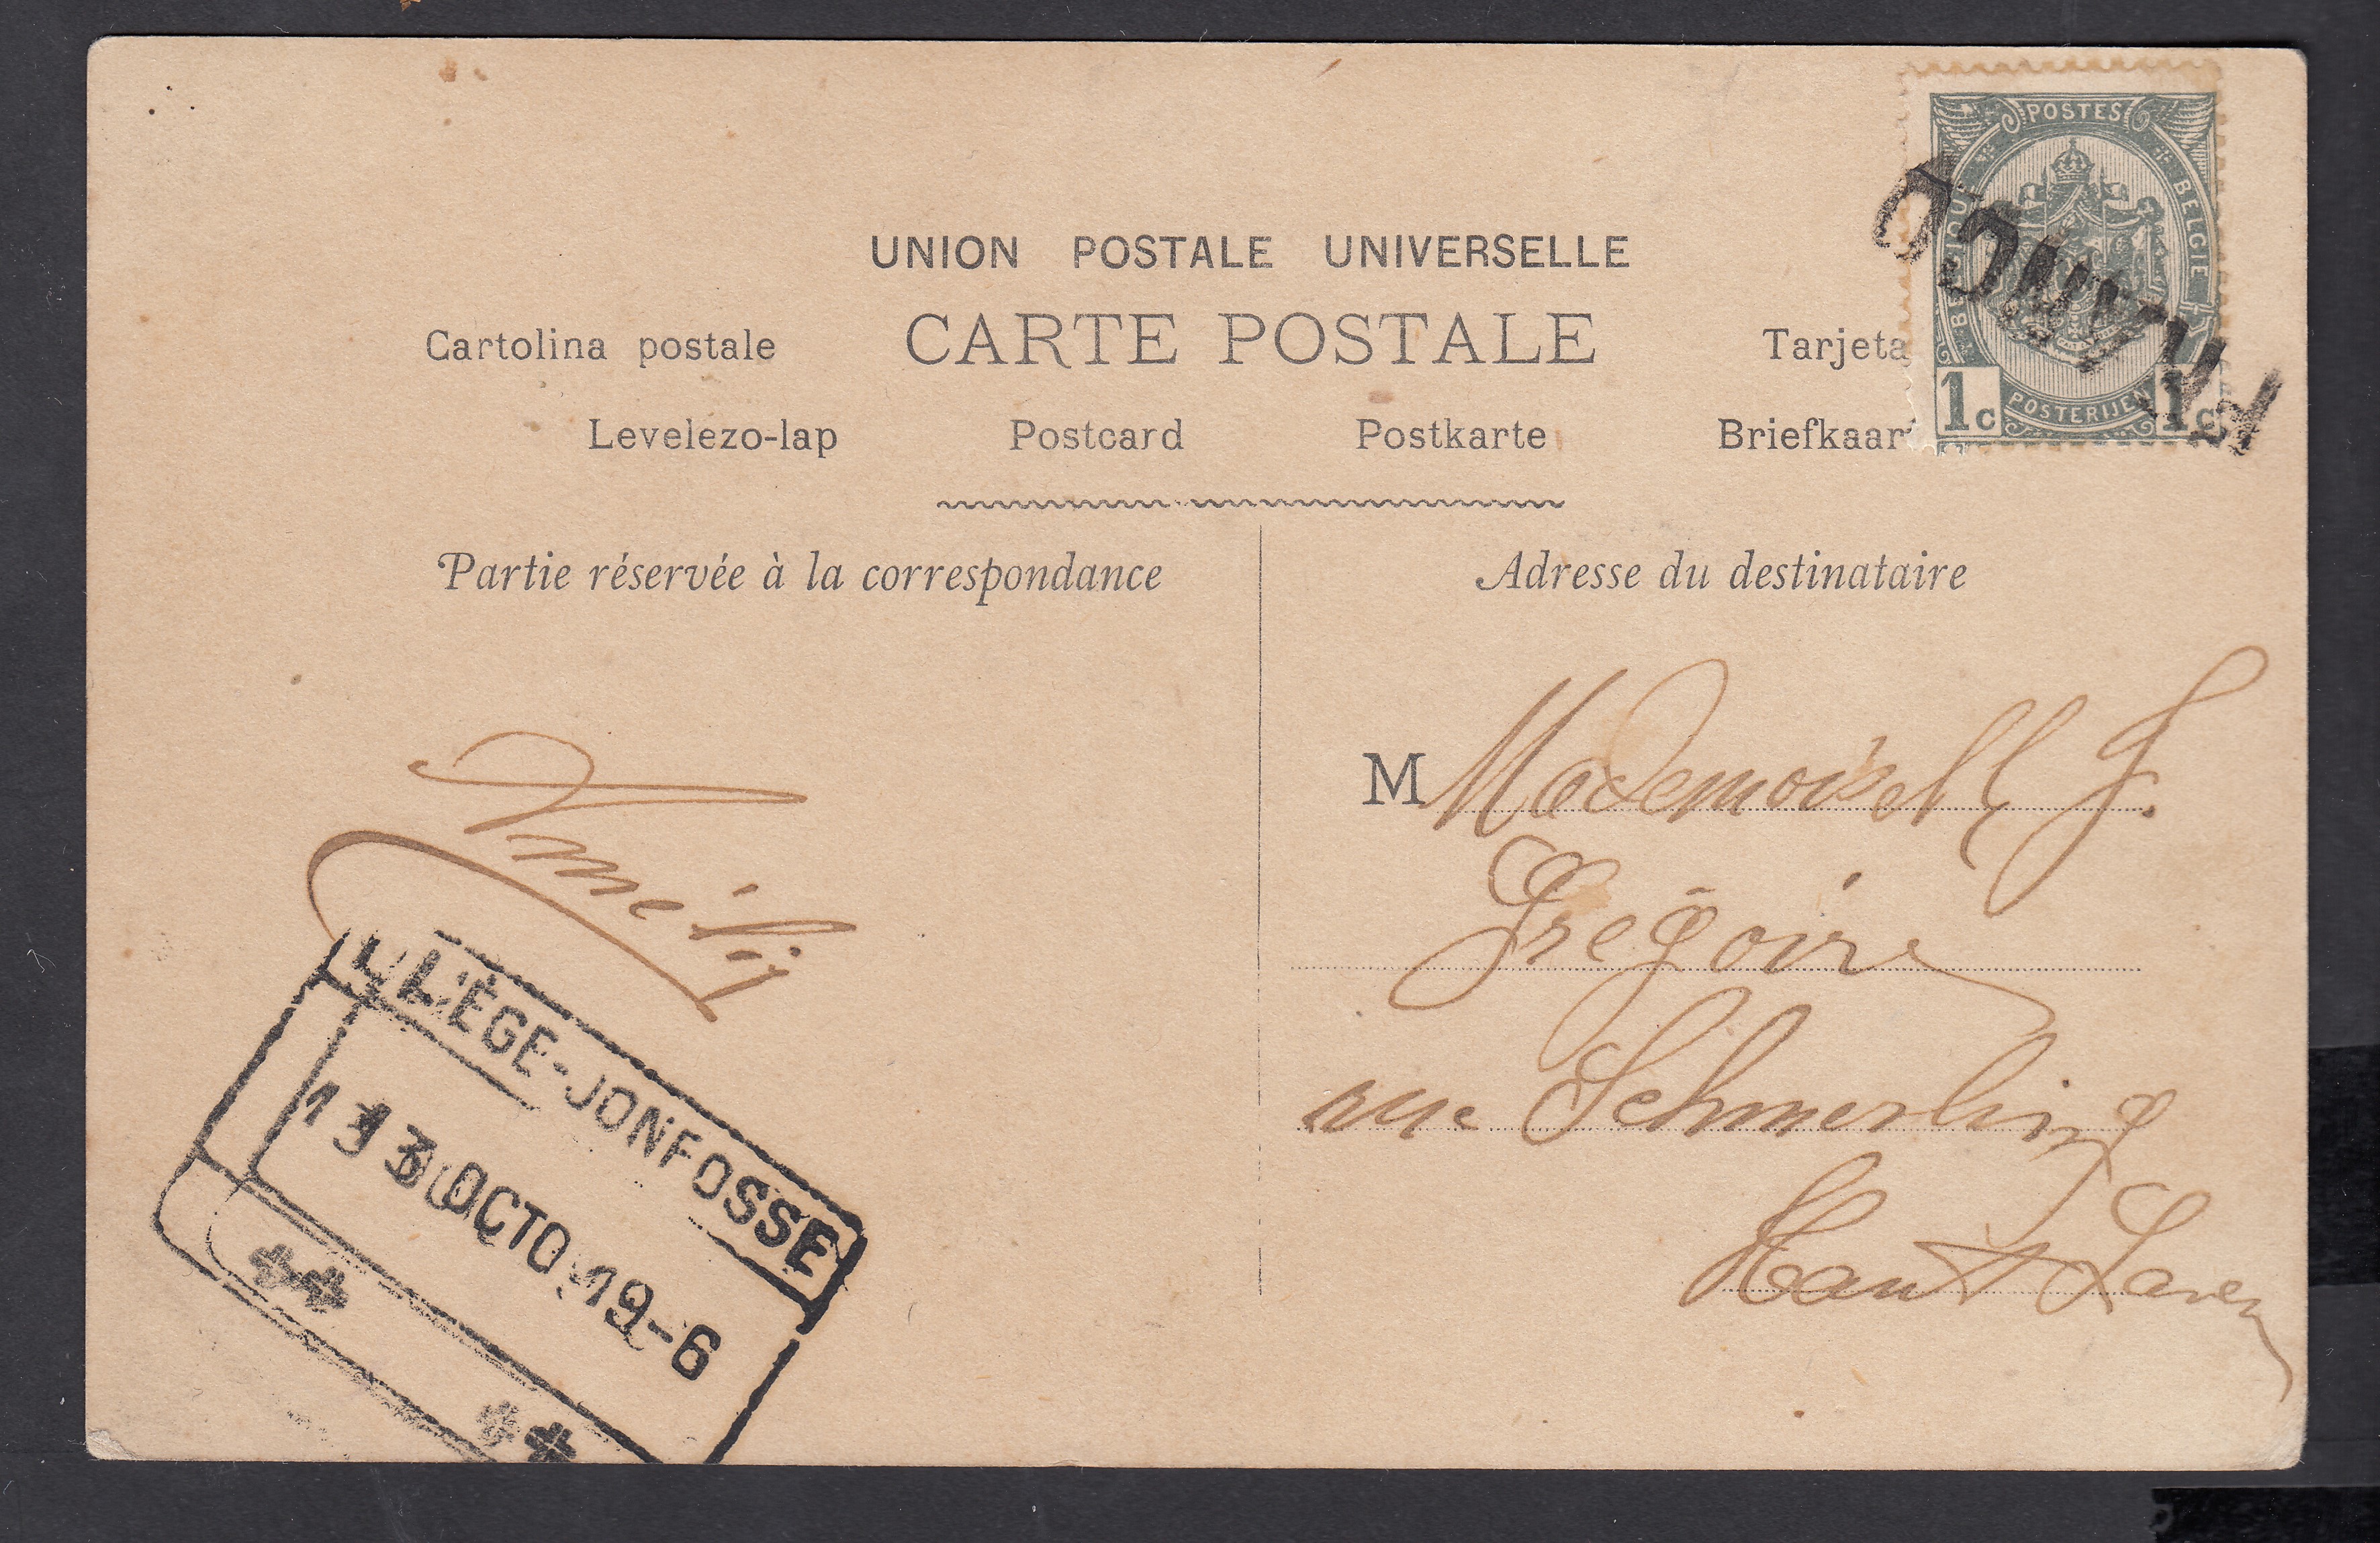 POSTES
BELGIQUE
BELGIE
FRANCO
1c
POSTERIJEN
1c
UNION POSTALE UNIVERSELLE
Cartolina postale
CARTE POSTALE
Tarjeta
Levelezo-lap
Postcard
Postkarte
Briefkaar
Partie réservée à la correspondance
Adresse du destinataire
M Mademoiselle J.
Grégoire
rue Schmerling
Amélie
LIÈGE-JONFOSSE
13 OCTO 19-6